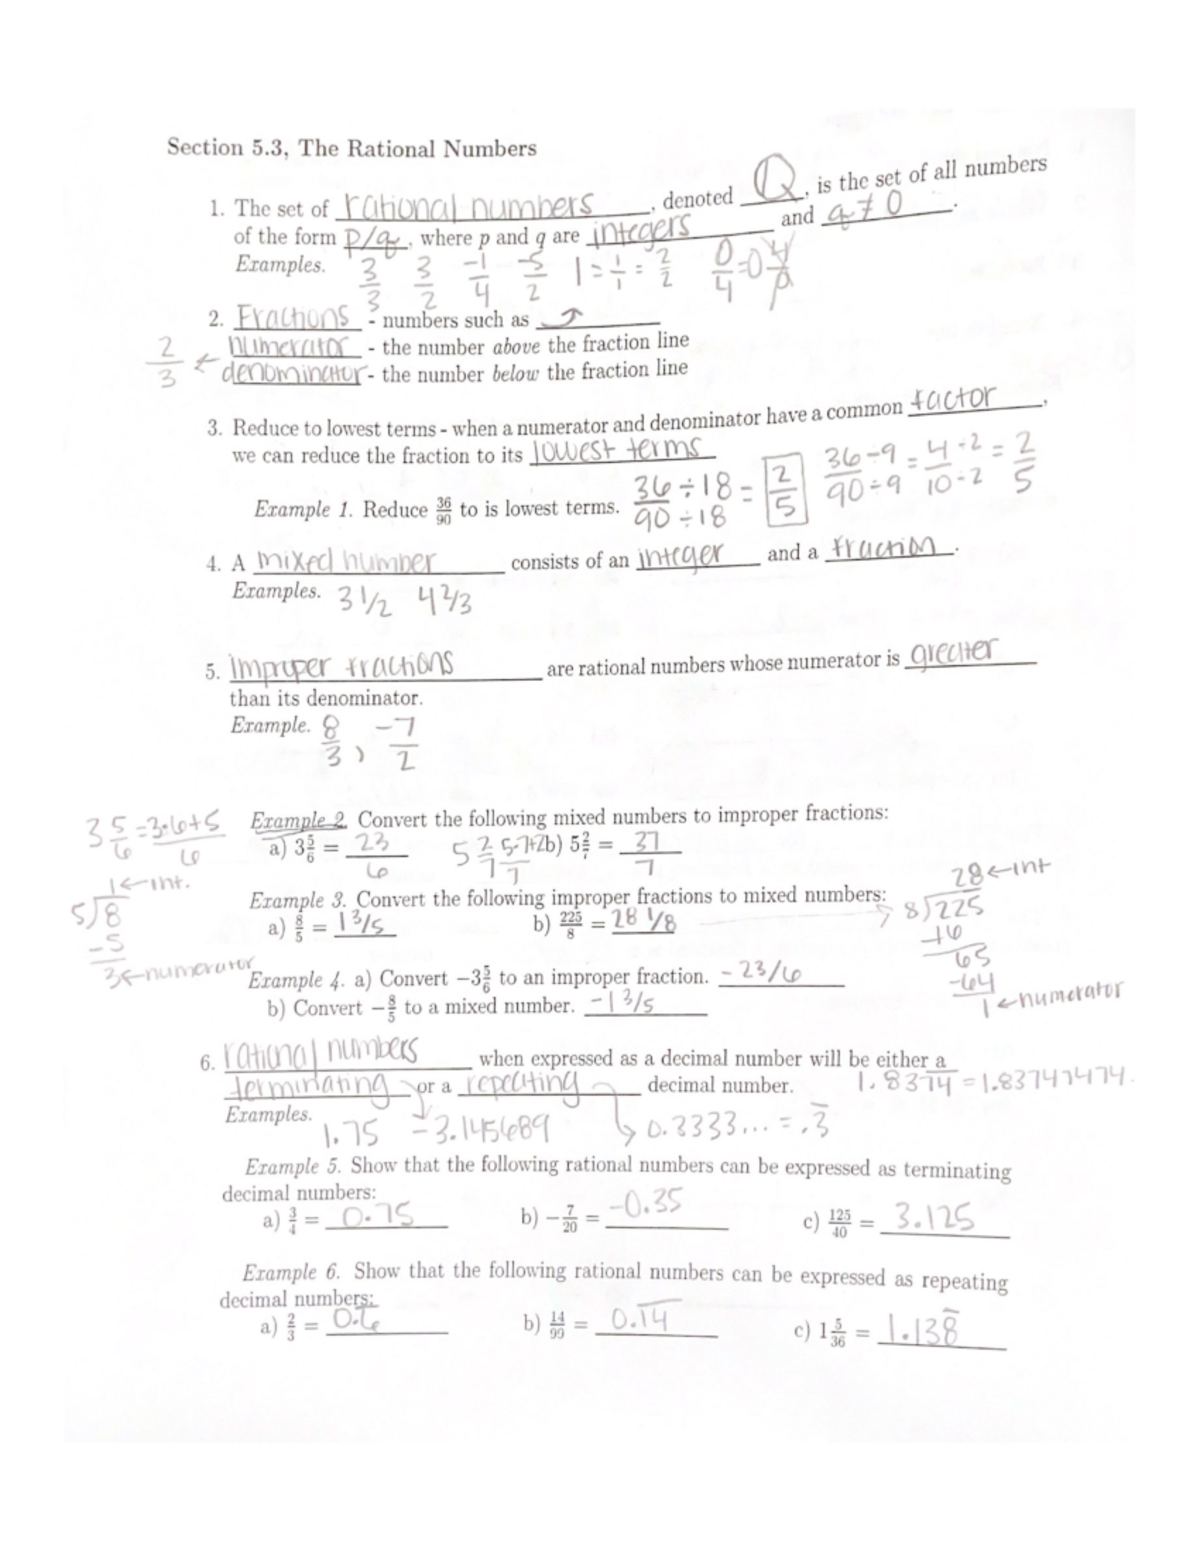 Section 5.3, The Rational Numbers
1. The set of rational numbers, denoted Q, is the set of all numbers
of the form p/q, where p and q are integers and q ≠ 0.
Examples. 3/3 3/2 -1/4 -5/2 1 = 1/1 = 2/2 0/4 = 0
2. Fractions - numbers such as ↗
2/3 ← numerator - the number above the fraction line
denominator - the number below the fraction line
3. Reduce to lowest terms - when a numerator and denominator have a common factor,
we can reduce the fraction to its lowest terms
Example 1. Reduce 36/90 to is lowest terms. 36÷18/90÷18 = 2/5 36÷9/90÷9 = 4÷2/10÷2 = 2/5
4. A mixed number consists of an integer and a fraction.
Examples. 3 1/2 4 2/3
5. Improper fractions are rational numbers whose numerator is greater
than its denominator.
Example. 8/3, -7/2
Example 2. Convert the following mixed numbers to improper fractions:
3 5/6 = 3·6+5/6 a) 3 5/6 = 23/6 5 2/7 5·7+2/7 b) 5 2/7 = 37/7
Example 3. Convert the following improper fractions to mixed numbers:
a) 8/5 = 1 3/5 b) 225/8 = 28 1/8
1 ← int.
5)8
-5
3 ← numerator
28 ← int
8)225
-16
65
-64
1 ← numerator
Example 4. a) Convert −3 5/6 to an improper fraction. -23/6
b) Convert −8/5 to a mixed number. -1 3/5
6. rational numbers when expressed as a decimal number will be either a
terminating or a repeating decimal number. 1.837̅4̅ = 1.83747474.
Examples. 1.75 -3.145689 0.3333... = .3̅
Example 5. Show that the following rational numbers can be expressed as terminating
decimal numbers:
a) 3/4 = 0.75 b) −7/20 = -0.35 c) 125/40 = 3.125
Example 6. Show that the following rational numbers can be expressed as repeating
decimal numbers:
a) 2/3 = 0.6̅ b) 14/99 = 0.1̅4̅ c) 1 5/36 = 1.138̅